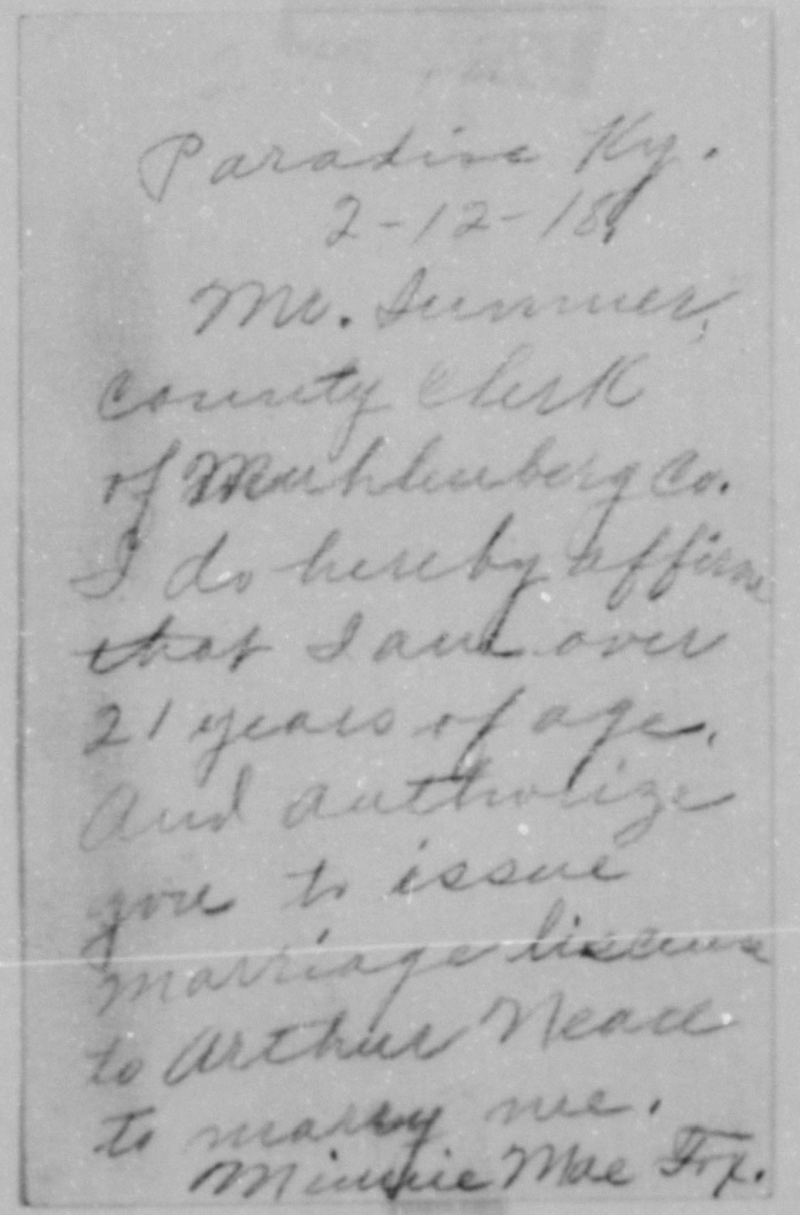 Paradise Ky.
2-12-18,
Mr. Sumner,
County Clerk
of Muhlenberg Co.
I do hereby affirm
that I am over
21 years of age.
And authorize
you to issue
marriage liscense
to Arthur Neace
to marry me.
Minnie Mae Fox.